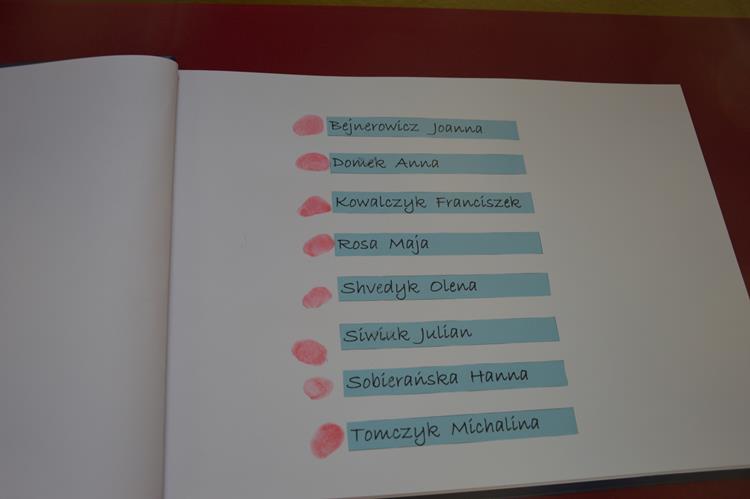 Bejnerowicz Joanna
Domek Anna
Kowalczyk Franciszek
Rosa Maja
Shvedyk Olena
Siwiuk Julian
Sobierańska Hanna
Tomczyk Michalina